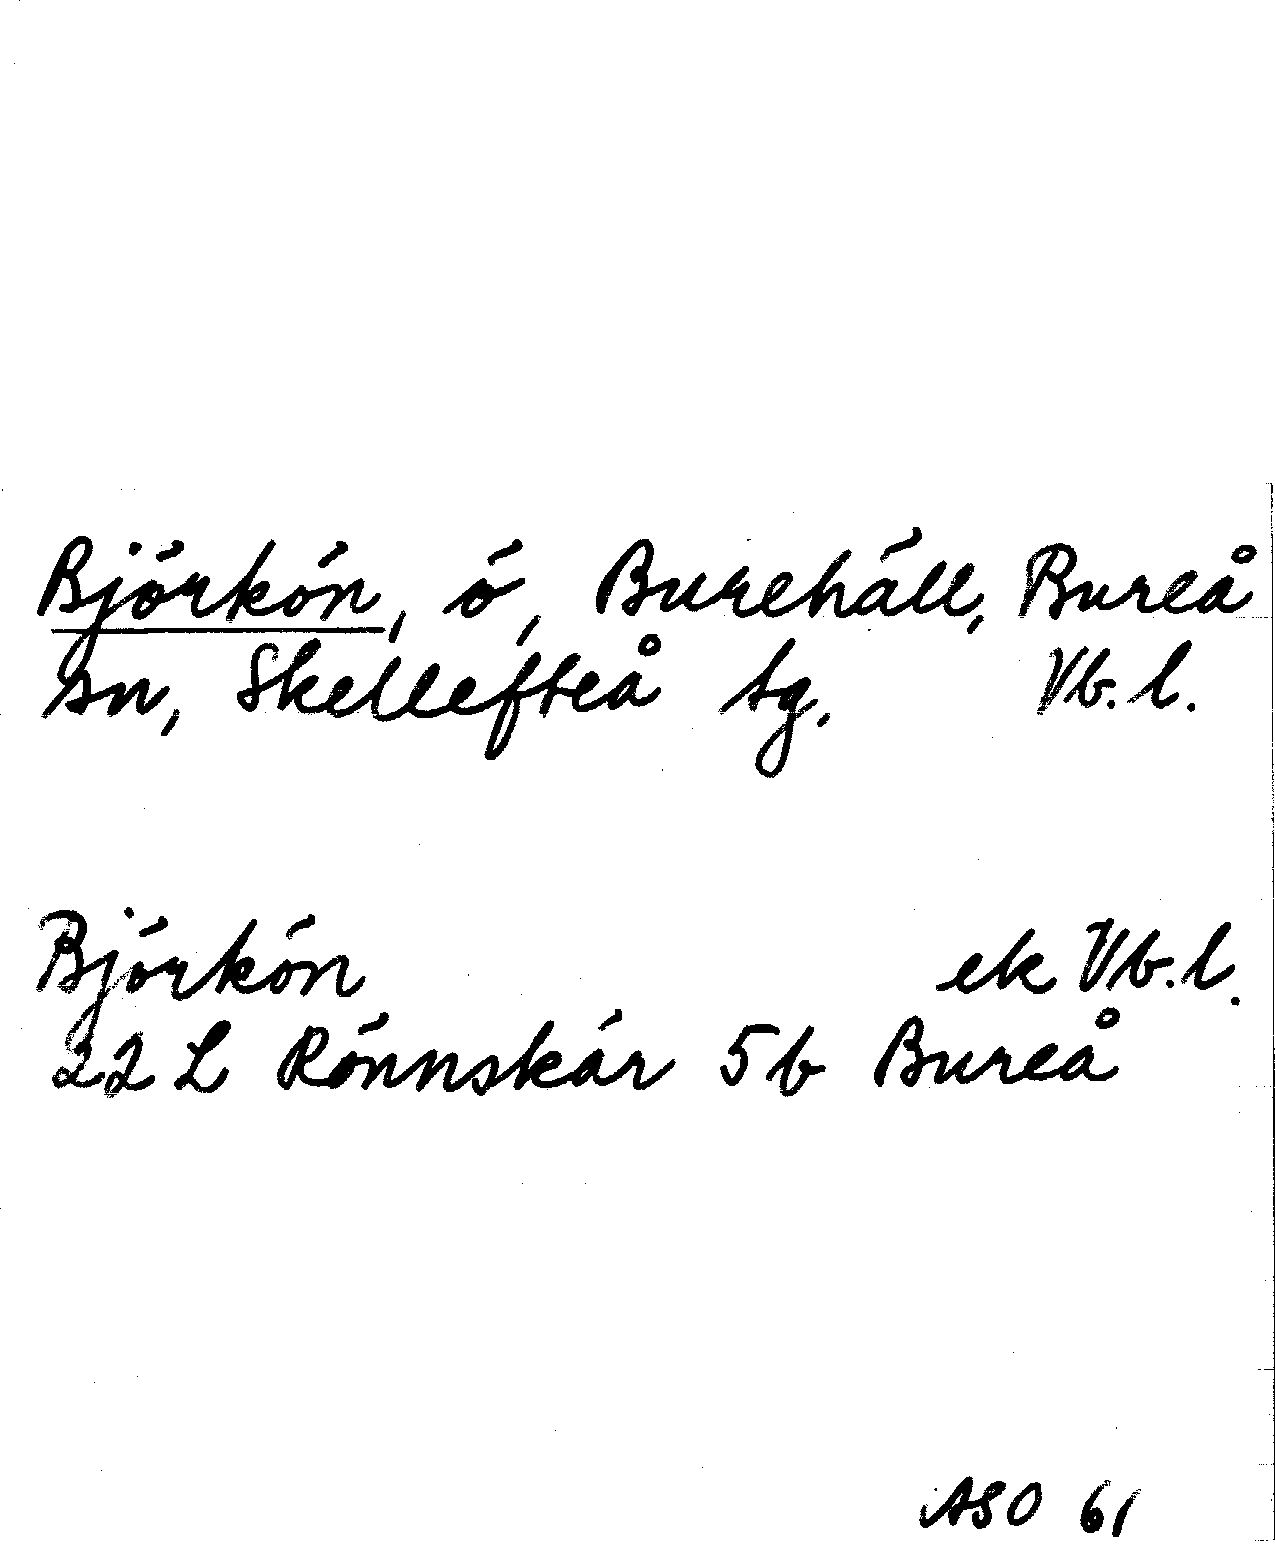 Björkön, ö, Burehäll, Bureå
sn, Skellefteå tg. Vb. l.
Björkön ek Vb. l.
22 L Rönnskär 5b Bureå
ASO 61